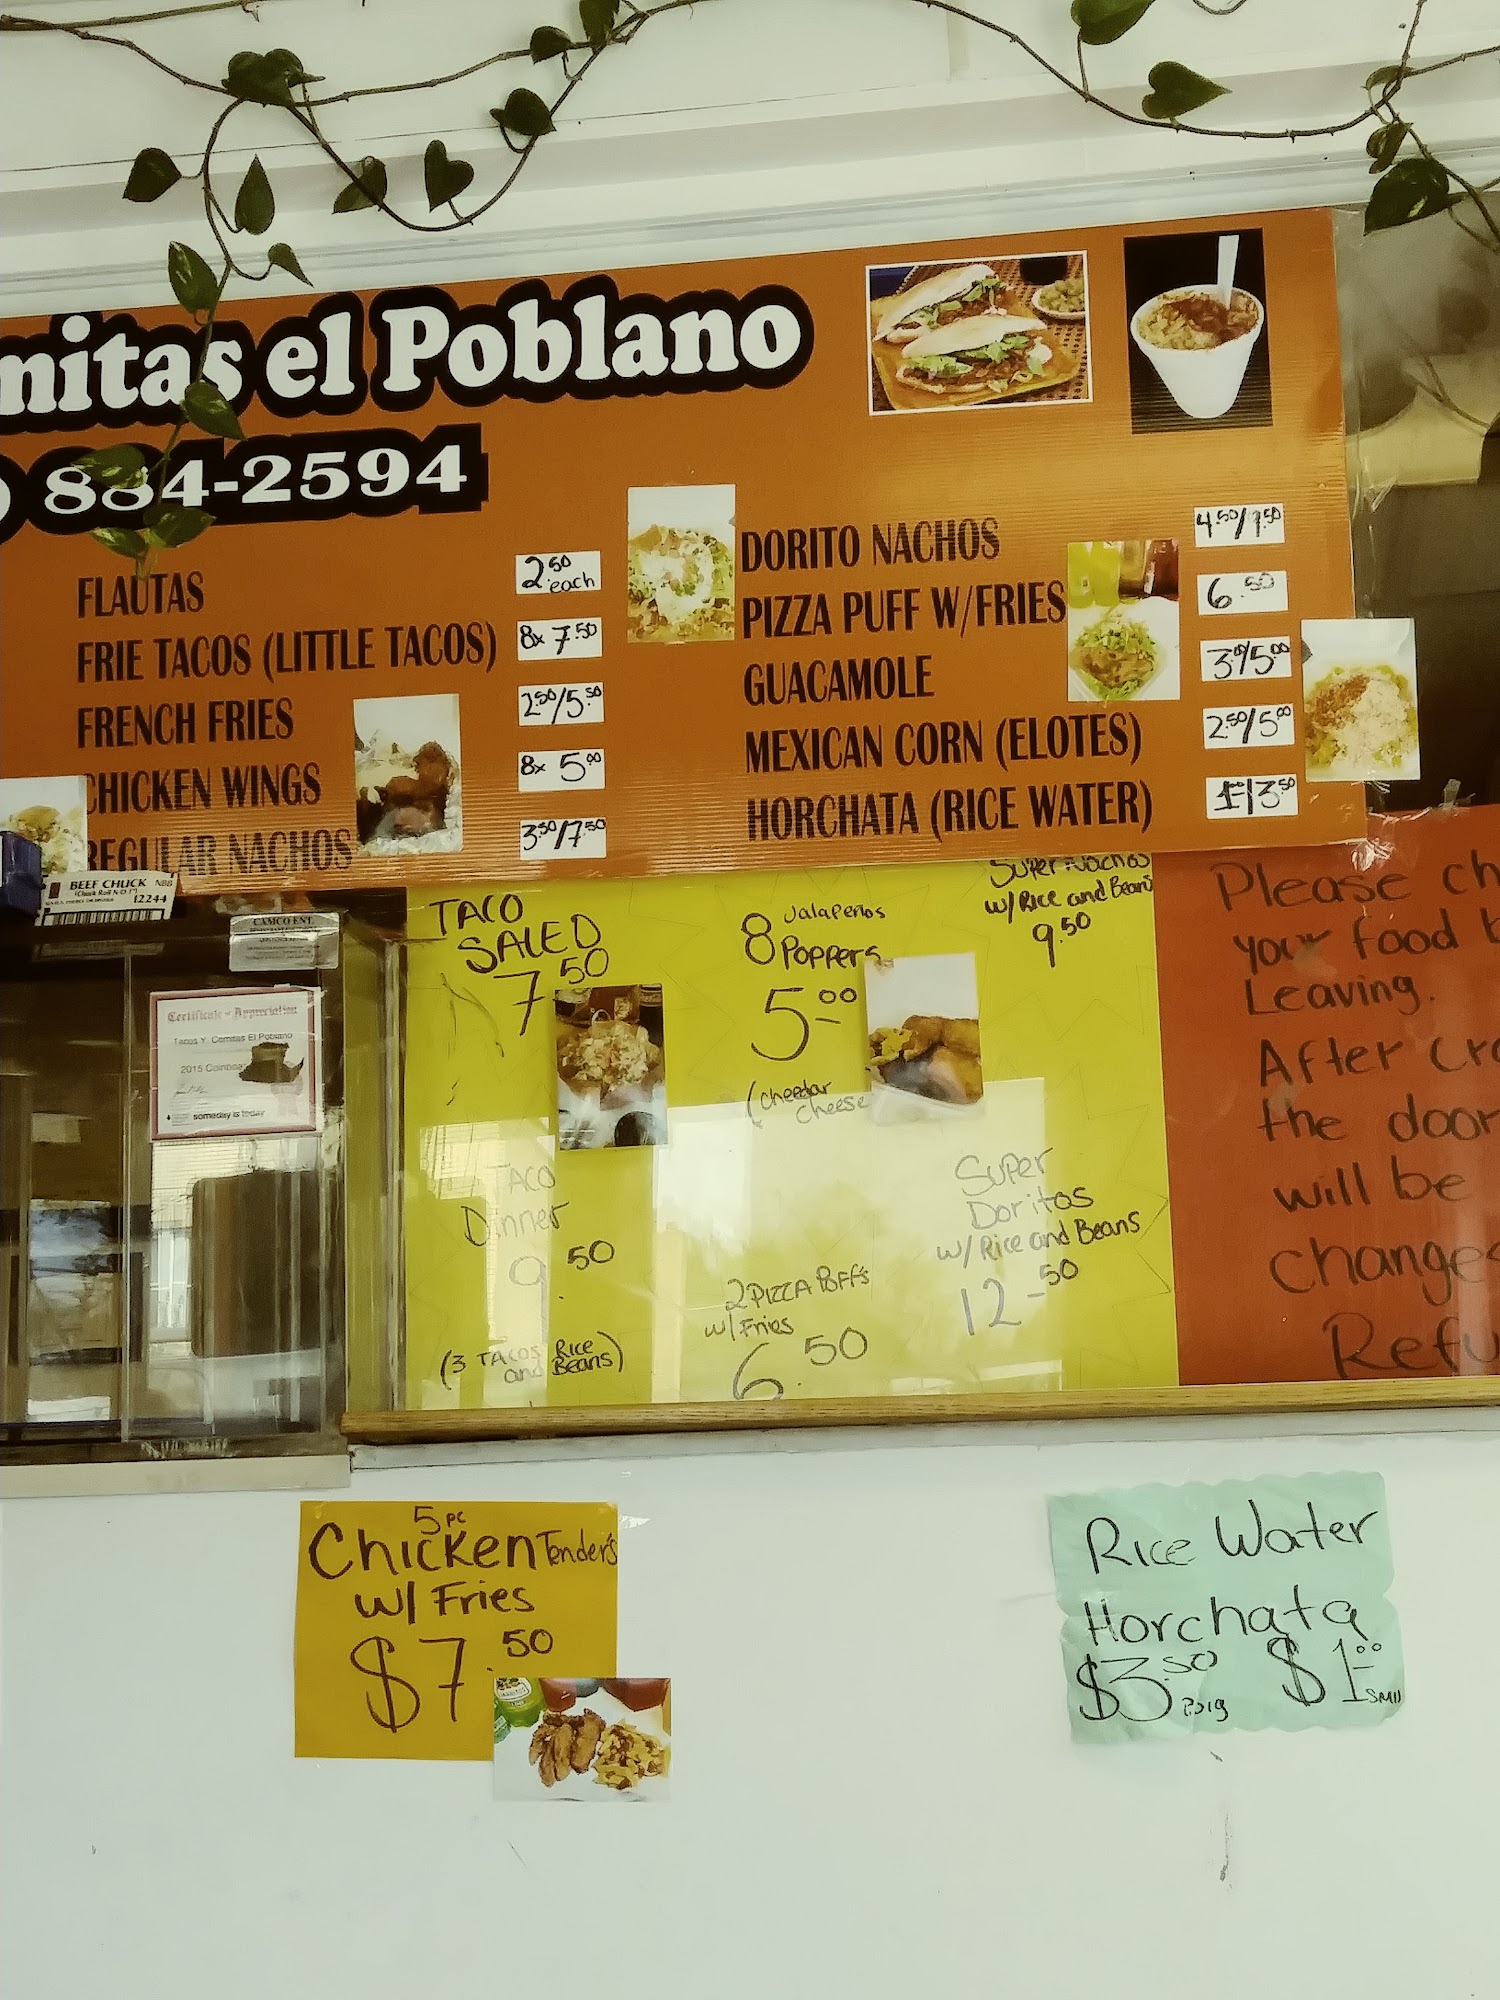 mitas el Poblano
) 884-2594
FLAUTAS 2.50 each
FRIE TACOS (LITTLE TACOS) 8x 7.50
FRENCH FRIES 2.50/5.50
CHICKEN WINGS 8x 5.00
REGULAR NACHOS 3.50/7.50
DORITO NACHOS 4.50/
PIZZA PUFF W/FRIES 6.50
GUACAMOLE 3.00/5.00
MEXICAN CORN (ELOTES) 2.50/5.00
HORCHATA (RICE WATER) 1=/3.50
BEEF CHUCK NBB
12244
CAMCO ENT.
Certificate of Appreciation
Tacos Y. Cemitas El Poblano
2015
someday is today
TACO
SALED
7.50
8 Jalapeños
Poppers
5.00
(cheedar
cheese
Super Nachos
w/ Rice and Beans
9.50
TACO
Dinner
9.50
(3 TACOS Rice
and Beans)
2 PIZZA POFF's
w/ Fries
6.50
Super
Doritos
w/ Rice and Beans
12.50
Please ch
your food b
Leaving.
After cro
the door
will be
changes
Refu
5 pc
Chicken Tender's
w/ Fries
$7.50
Rice Water
Horchata
$3.50 $1.00